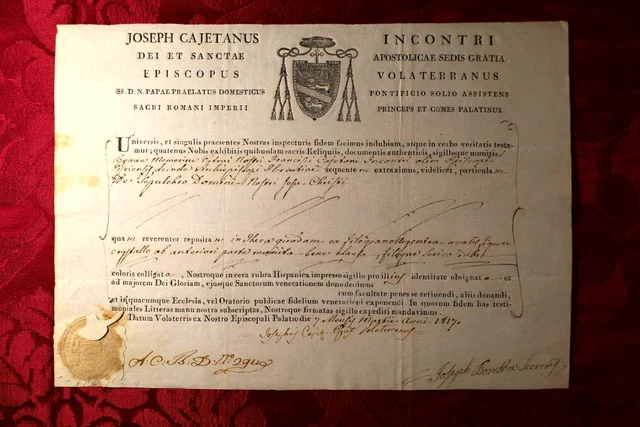 JOSEPH CAJETANUS INCONTRI
DEI ET SANCTAE APOSTOLICAE SEDIS GRATIA
EPISCOPUS VOLATERRANUS
SS. D. N. PAPAE PRAELATUS DOMESTICUS PONTIFICIO SOLIO ASSISTENS
SACRI ROMANI IMPERII PRINCEPS ET COMES PALATINUS
Universis, et singulis praesentes Nostras inspecturis fidem facimus indubiam, atque in verbo veritatis testa-
mur; quatenus Nobis exhibitis quibusdam sacris Reliquiis, documentis authenticis, sigilloque munitis
Bonae Memoriae Nostri Francisci Cajetani Incontri olim
deinde Archiepiscopi Florentini sequentem extraximus, videlicet, particulam
De Sepulchro Domini Nostri Jesu Christi
quam reverenter repositam in Theca quadam ex filograno Argenteo ovalis figurae
crystallo ab anteriori parte munita bene clausa, filoque serico rubri
coloris colligata, Nostroque in cera rubra Hispanica impresso sigillo pro illius identitate obsignata et
ad majorem Dei Gloriam, ejusque Sanctorum venerationem dono dedimus
cum facultate penes se retinendi, aliis donandi,
et in quacumque Ecclesia, vel Oratorio publicae fidelium venerationi exponendi. In quorum fidem has testi-
moniales Litteras manu nostra subscriptas, Nostroque firmatas sigillo expediri mandavimus.
Datum Volaterris ex Nostro Episcopali Palatio die 7 Mensis Martii Anni 1817.
Josephus Volaterranus
A. C. B. D. N°
Joseph